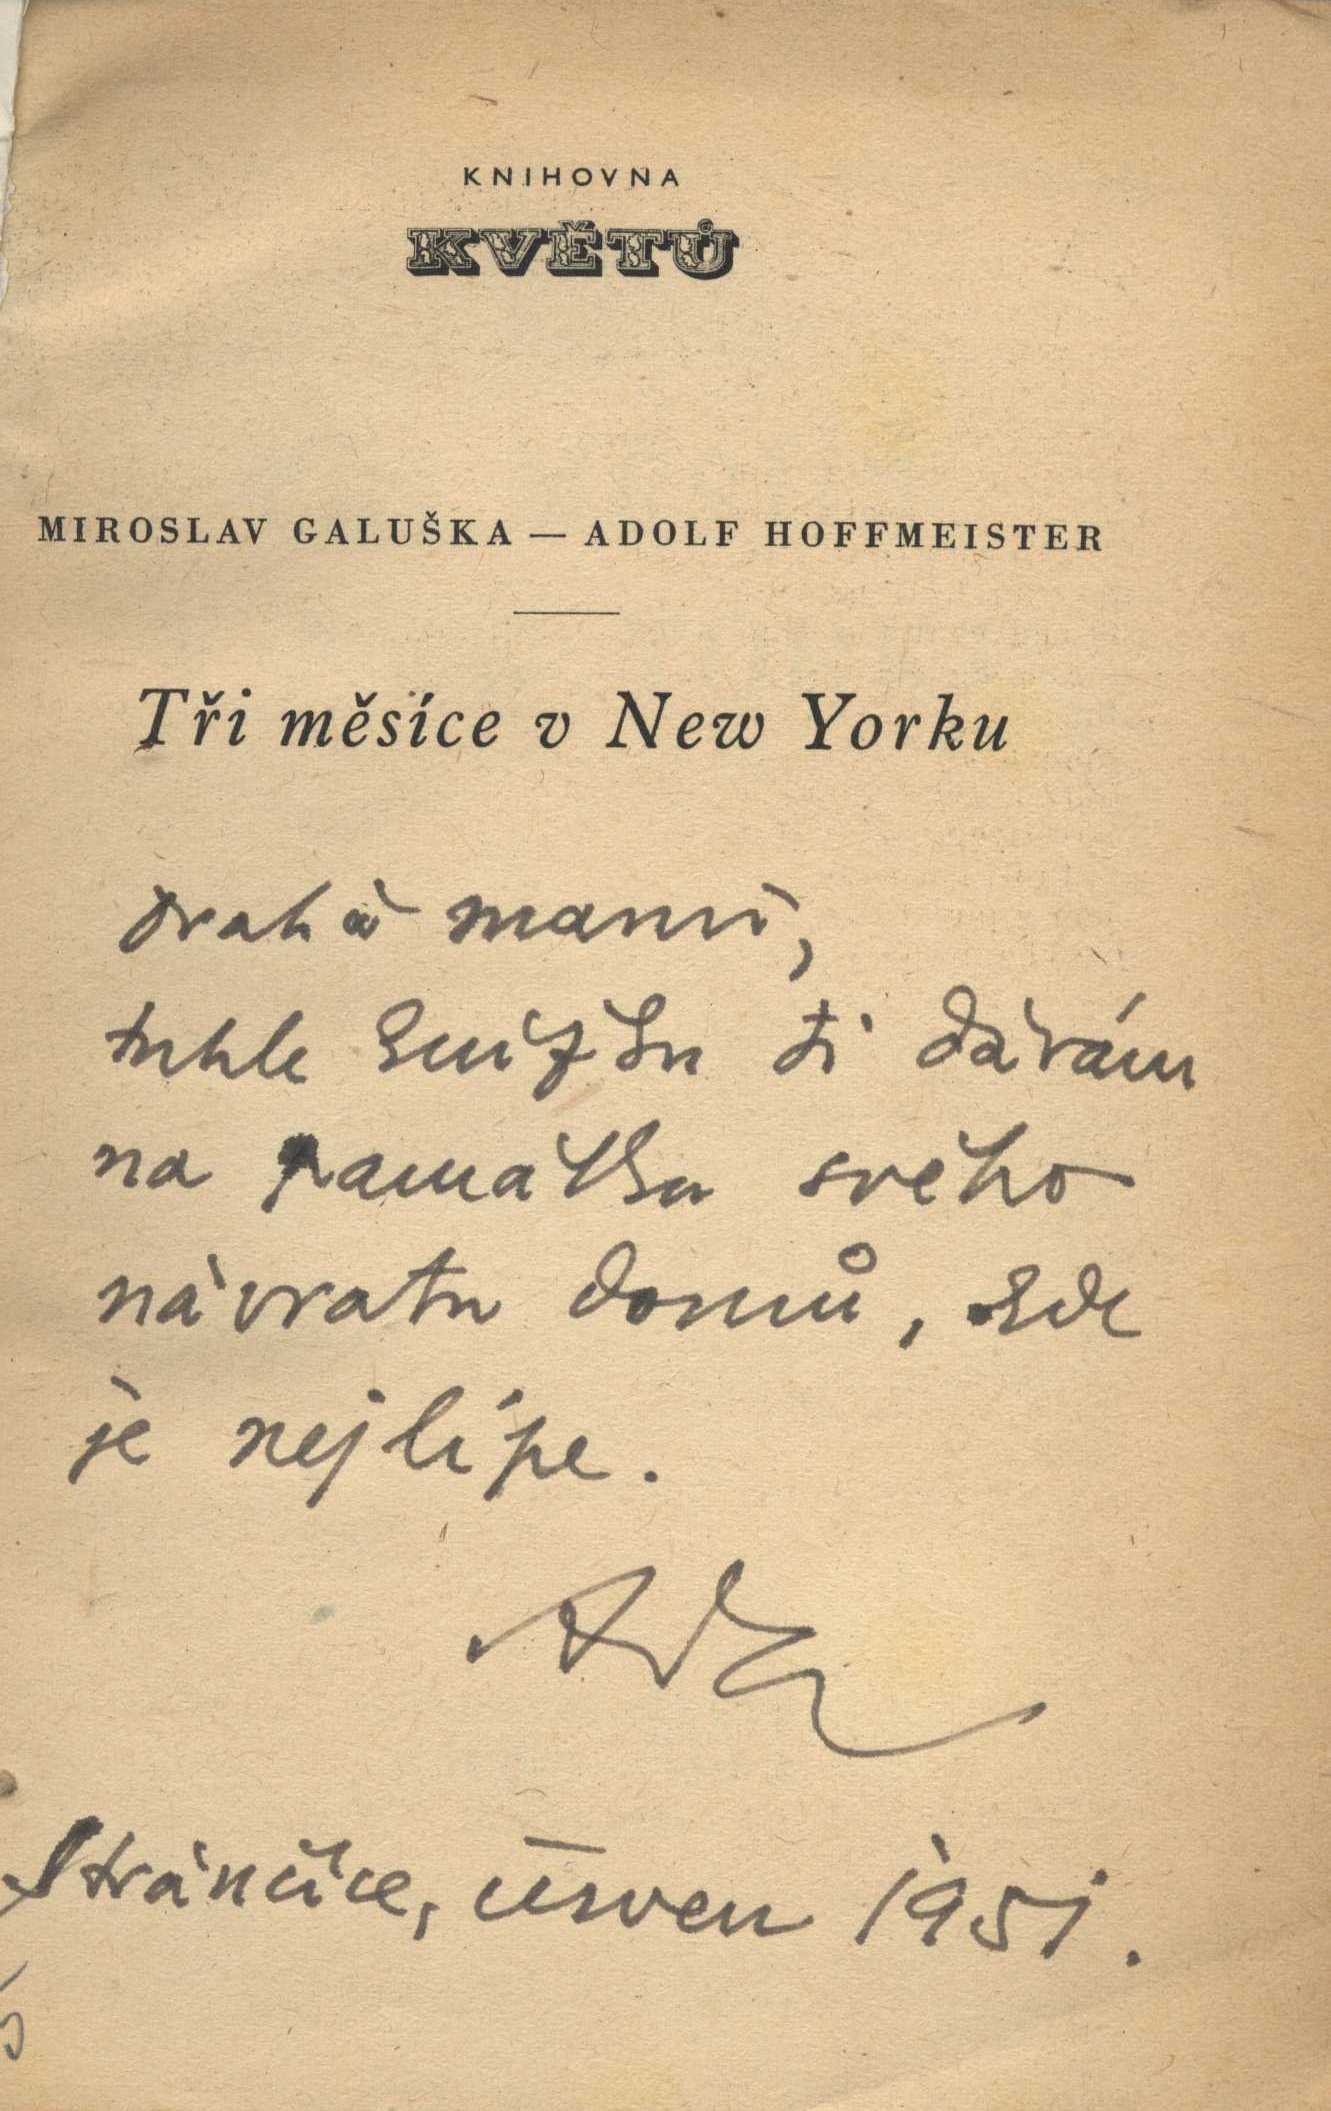 KNIHOVNA
KVĚTŮ
MIROSLAV GALUŠKA — ADOLF HOFFMEISTER
Tři měsíce v New Yorku
Drahá mami,
tuhle knížku ti dávám
na památku svého
návratu domů, kde
je nejlípe.
Stránčice, červen 1951.